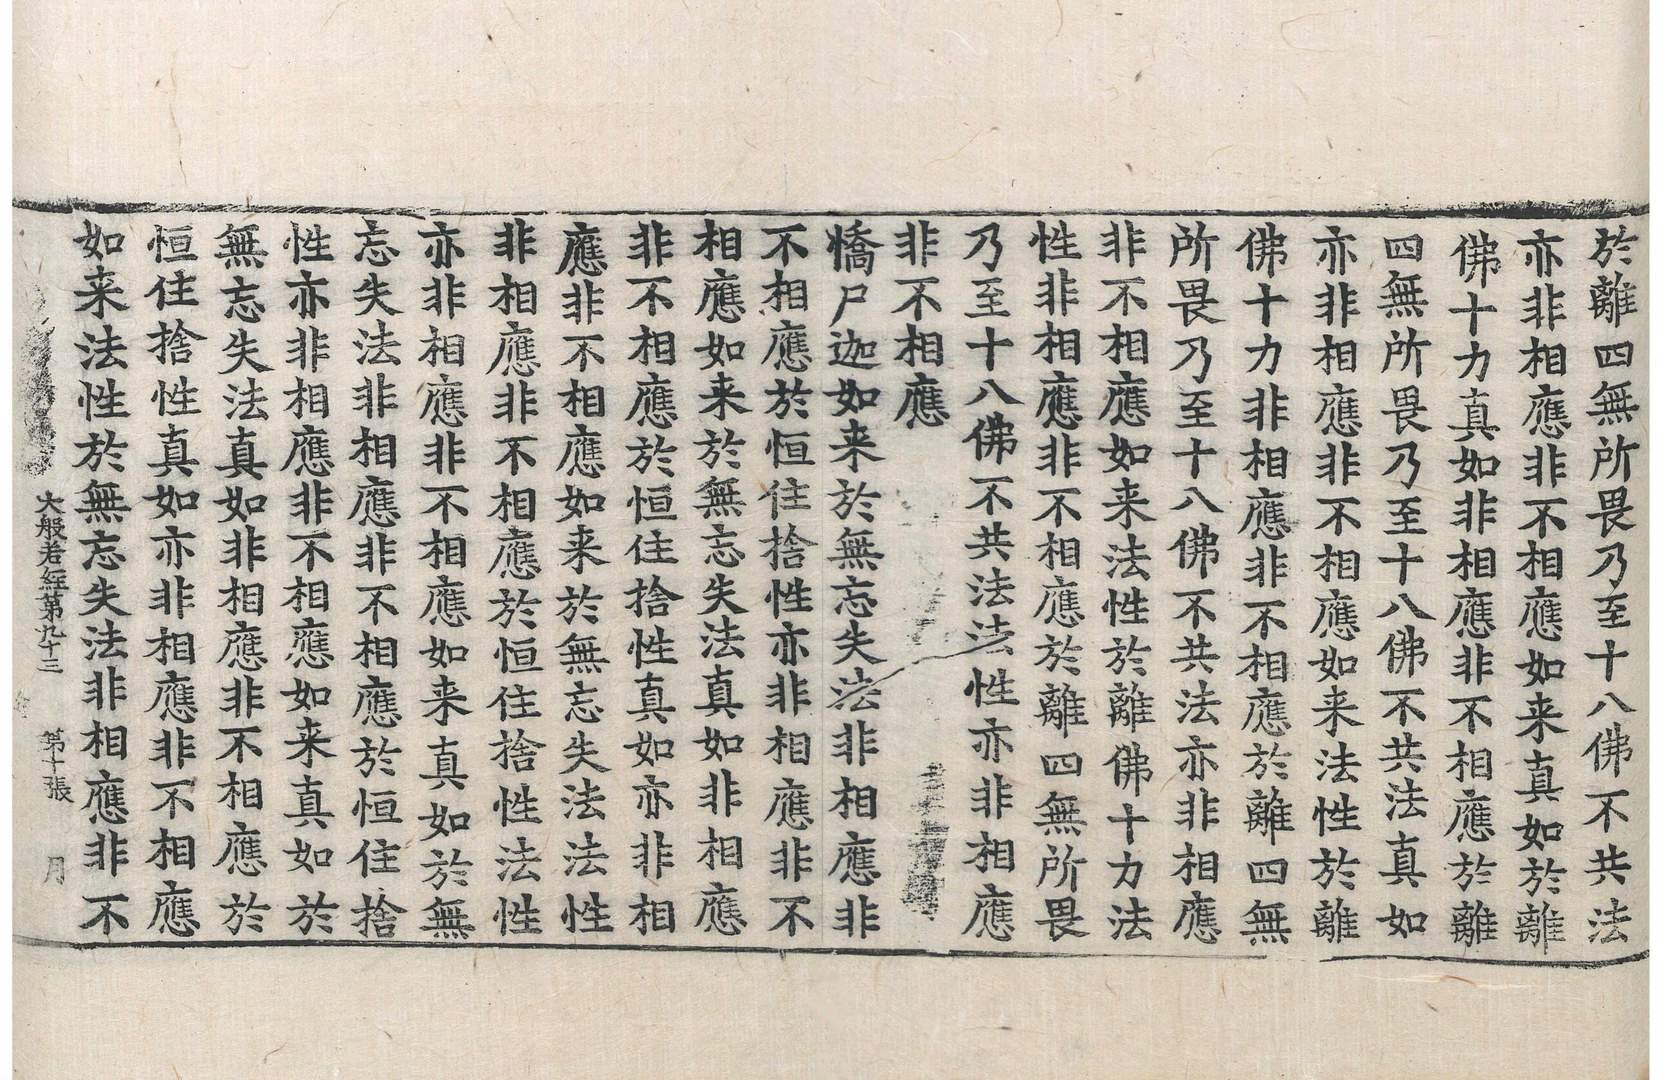 於離四無所畏乃至十八佛不共法
亦非相應非不相應如来真如於離
佛十力真如非相應非不相應於離
四無所畏乃至十八佛不共法真如
亦非相應非不相應如来法性於離
佛十力非相應非不相應於離四無
所畏乃至十八佛不共法亦非相應
非不相應如来法性於離佛十力法
性非相應非不相應於離四無所畏
乃至十八佛不共法法性亦非相應
非不相應
憍尸迦如来於無忘失法非相應非
不相應於恒住捨性亦非相應非不
相應如来於無忘失法真如非相應
非不相應於恒住捨性真如亦非相
應非不相應如来於無忘失法法性
非相應非不相應於恒住捨性法性
亦非相應非不相應如来真如於無
忘失法非相應非不相應於恒住捨
性亦非相應非不相應如来真如於
無忘失法真如非相應非不相應於
恒住捨性真如亦非相應非不相應
如来法性於無忘失法非相應非不
大般若経第九十三 第十張 月